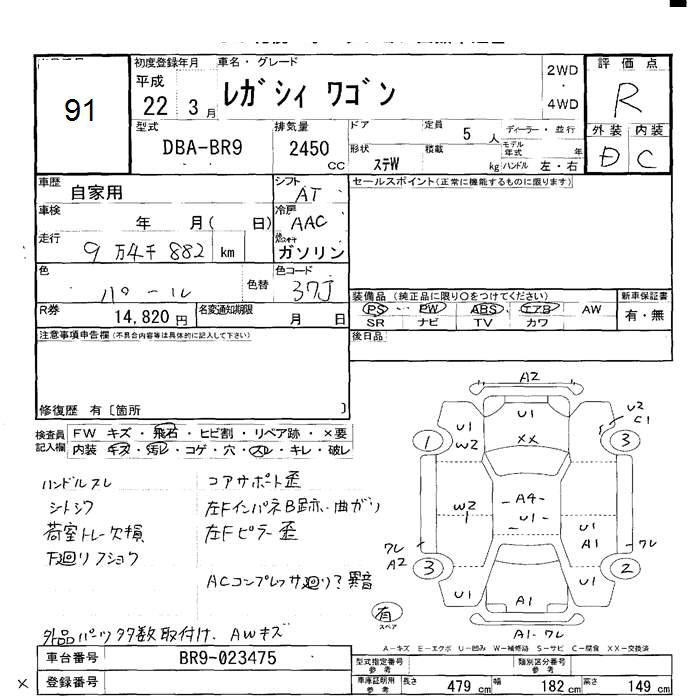 91
初度登録年月 車名・グレード
平成 22 3月
レガシィ ワゴン
2WD
・
4WD
評価点
R
外装 内装
D C
型式 排気量
DBA-BR9 2450 CC
ドア 定員 5人 ディーラー・並行
形状 ステW 積載 kg モデル年式 年
ハンドル 左・右
車歴 自家用
シフト AT
車検 年 月( 日)
冷房 AAC
走行 9万4千882 km
燃料 ガソリン
色 パール 色替
色コード 37J
R券 14,820円 名変通知期限 月 日
注意事項申告欄(不具合内容等は具体的に記入して下さい)
修復歴 有〔箇所 〕
セールスポイント(正常に機能するものに限ります)
装備品(純正品に限り○をつけてください)
PS PW ABS エアB AW
SR ナビ TV カワ
新車保証書
有・無
後日品
検査員記入欄
FW キズ・飛石・ヒビ割・リペア跡・×要
内装・キズ・汚レ・コゲ・穴・スレ・キレ・破レ
ハンドルスレ
シトシワ
荷室トレー欠損
下廻リフショク
コアサポート歪
左FインパネB跡・曲ガリ
左Fピラー歪
ACコンプレッサ廻リ?異音
外品パーツ多数取付け、AWキズ
A2
U1
XX
U1
W2
1
U2
C1
3
A4
U1
W2
1
クレ
A2
3
U1
A1
クレ
2
U1
U1
A1
A1・クレ
有
スペア
A-キズ E-エクボ U-凹み W-補修跡 S-サビ C-腐食 XX-交換済
車台番号 BR9-023475
× 登録番号
型式指定番号 参考 類別区分番号 参考
車庫証明用 参考 長さ 479 cm 幅 182 cm 高さ 149 cm